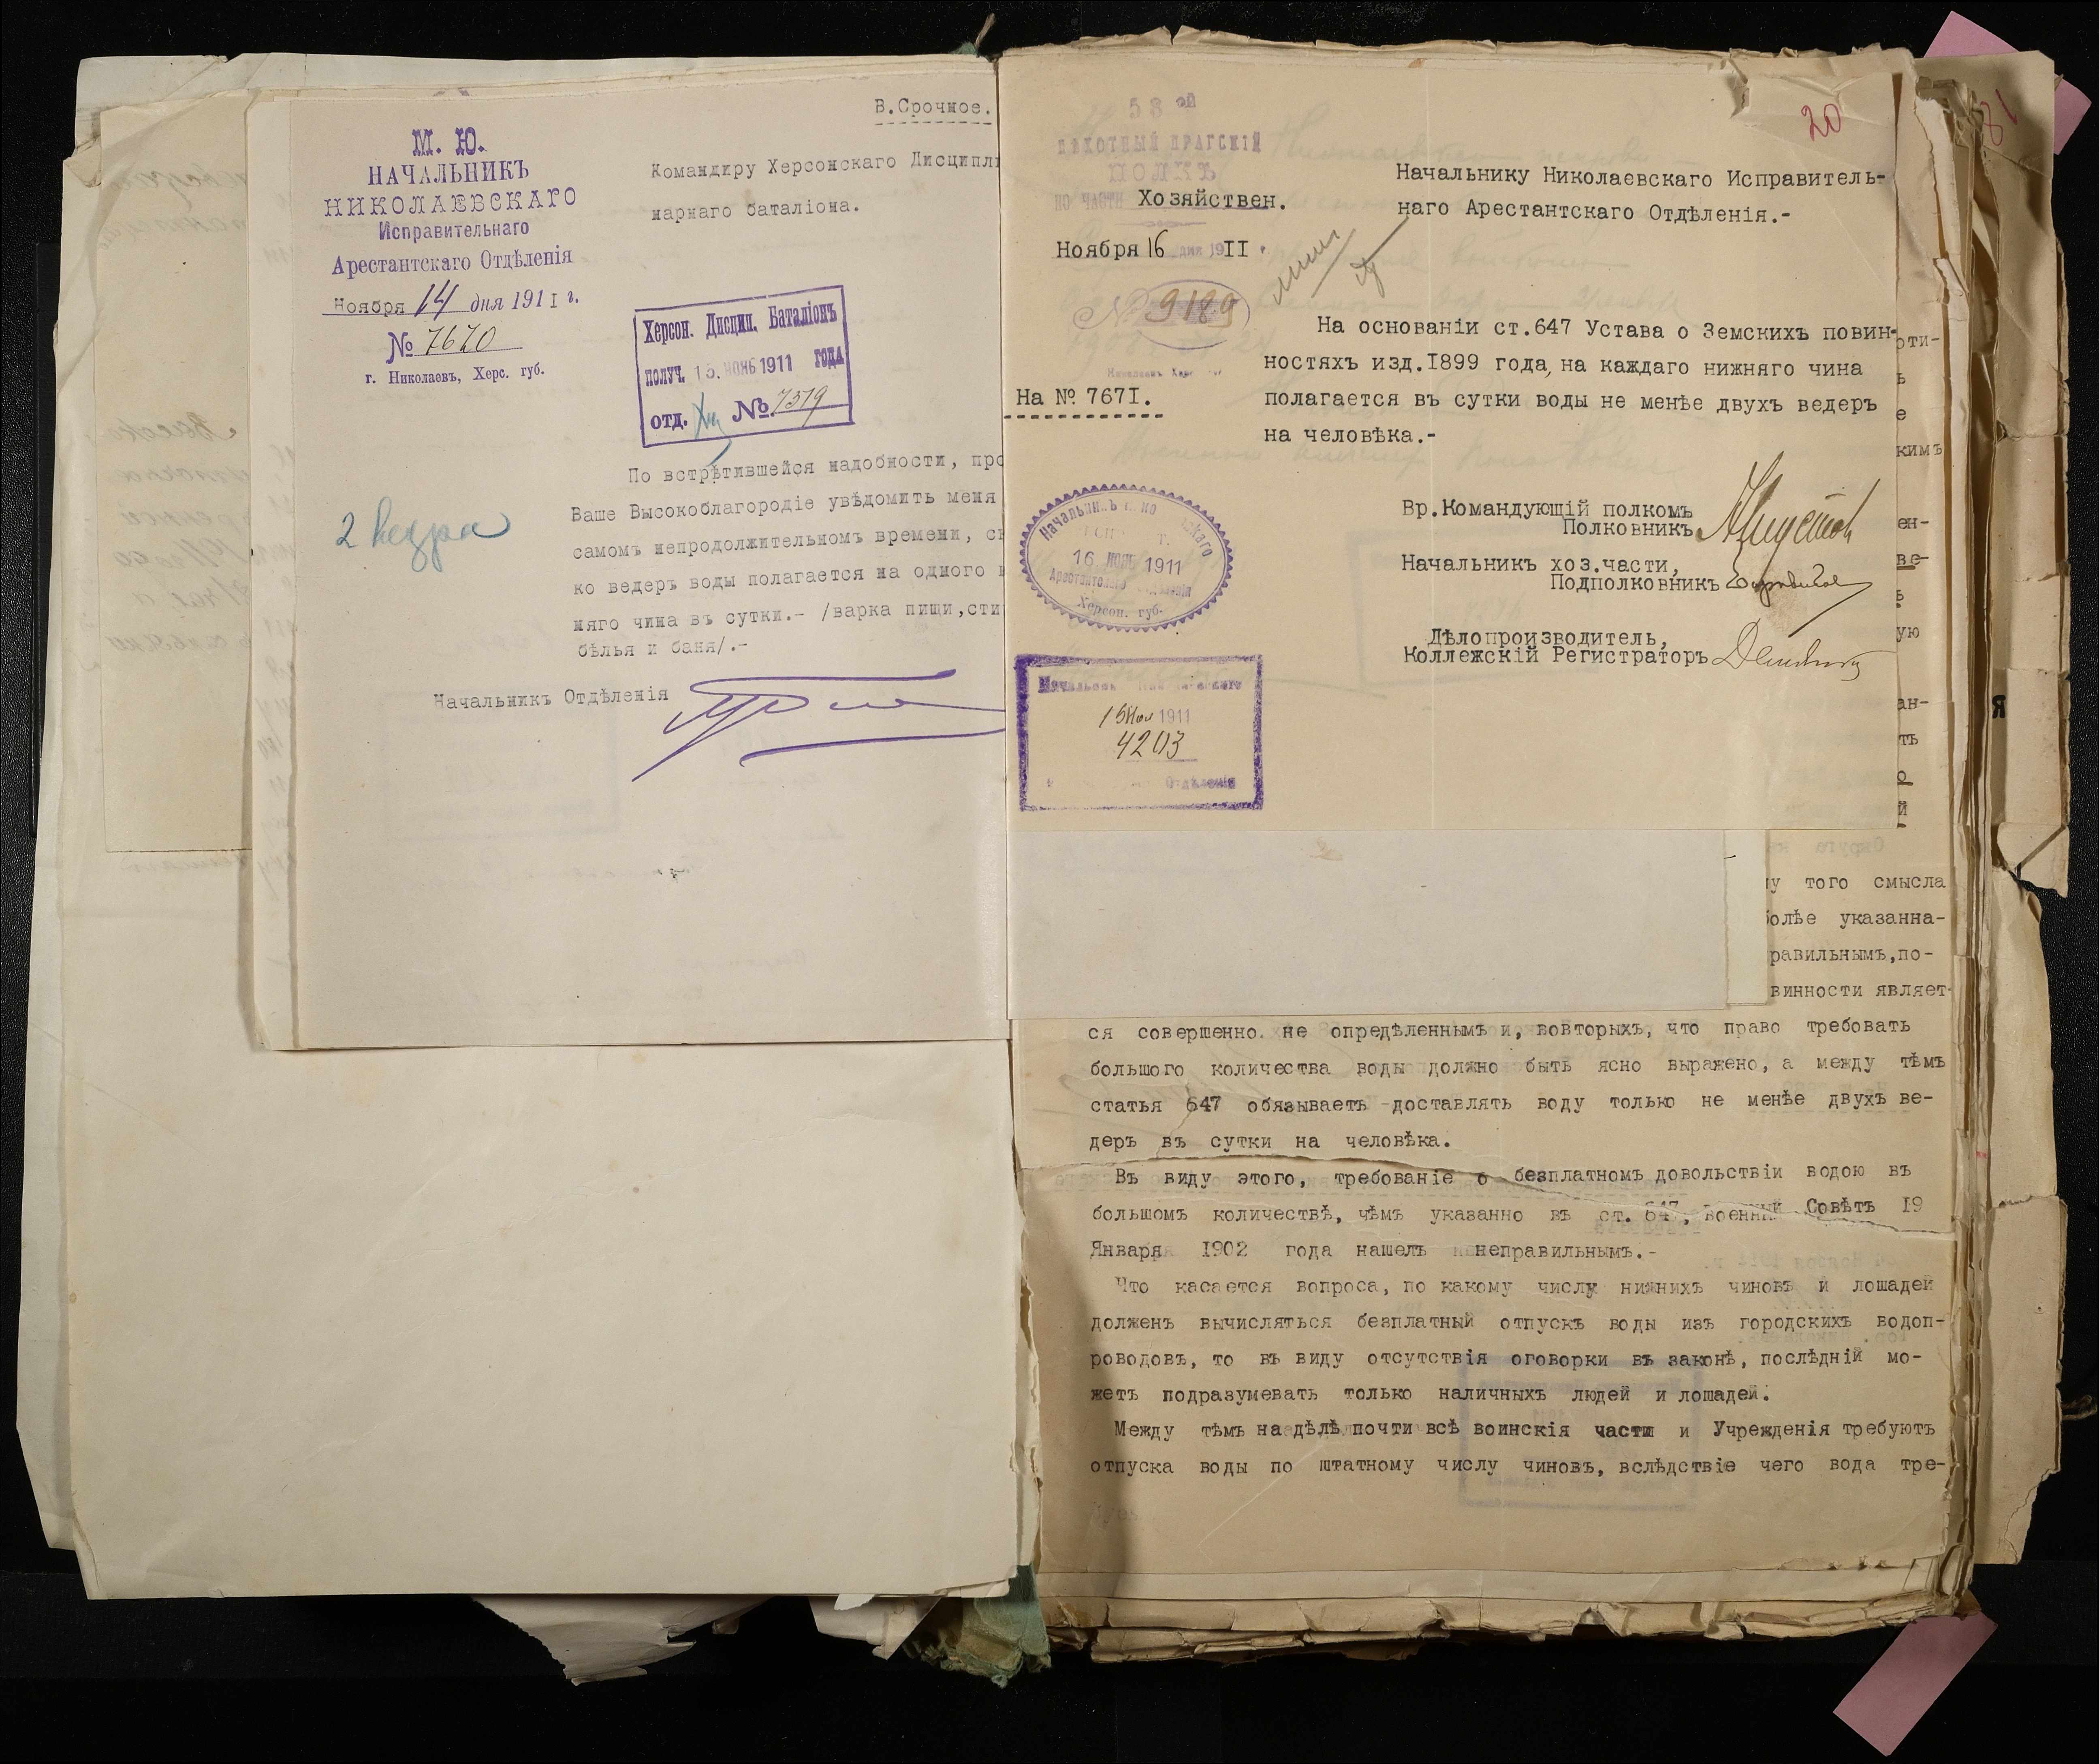 В.Срочное.
М. Ю.
НАЧАЛЬНИКЪ
НИКОЛАЕВСКАГО
Исправительнаго
Арестантскаго Отдѣленія
Ноября 14 дня 1911 г.
№ 7670
г. Николаевъ, Херс. губ.
Командиру Херсонскаго Дисципли
нарнаго баталіона.
Херсон. Дисцип. Баталіонъ
получ. 15. НОЯБ 1911 года
отд. № 7519
2 ведра
По встрѣтившейся надобности, про
Ваше Высокоблагородіе увѣдомить меня
самомъ непродолжительномъ времени, ск
ко ведеръ воды полагается на одного н
няго чина въ сутки.- /варка пищи,сти
бѣлья и баня/.-
Начальникъ Отдѣленія
20
81
58 ой
ПѢХОТНЫЙ ПРАГСКІЙ
ПОЛКЪ
ПО ЧАСТИ Хозяйствен.
Ноября 16 дня 19II г.
№ 9180
На № 767I.
Начальнику Николаевскаго Исправитель-
наго Арестантскаго Отдѣленія.-
На основаніи ст.647 Устава о Земскихъ повин-
ностяхъ изд.I899 года, на каждаго нижняго чина
полагается въ сутки воды не менѣе двухъ ведеръ
на человѣка.-
Вр.Командующій полкомъ
Полковникъ
Начальникъ хоз.части,
Подполковникъ
Дѣлопроизводитель,
Коллежскій Регистраторъ
16. НОЯБ 1911
Арестантскаго Отдѣленія
Херсон. губ.
Начальникъ Николаевскаго
15 Ноя 1911
4203
Отдѣленія
оти-
ь
е
кимъ
ен-
ве-
ь
ую
ан-
ть
о
й
я
у того смысла
болѣе указанна-
равильнымъ,по-
винности являет-
ся совершенно не опредѣленнымъ и, вовторыхъ, что право требовать
большого количества воды должно быть ясно выражено, а между тѣмъ
статья 647 обязываетъ доставлять воду только не менѣе двухъ ве-
деръ въ сутки на человѣка.
Въ виду этого, требованіе о безплатномъ довольствіи водою въ
большомъ количествѣ, чѣмъ указанно въ ст. 647, Военный Совѣтъ I9
Января I902 года нашелъ неправильнымъ.-
Что касается вопроса, по какому числу нижнихъ чиновъ и лошадей
долженъ вычисляться безплатный отпускъ воды изъ городскихъ водоп-
роводовъ, то въ виду отсутствія оговорки въ законѣ, послѣдній мо-
жетъ подразумевать только наличныхъ людей и лошадей.
Между тѣмъ на дѣлѣ почти всѣ воинскія части и Учрежденія требуютъ
отпуска воды по штатному числу чиновъ, вслѣдствіе чего вода тре-